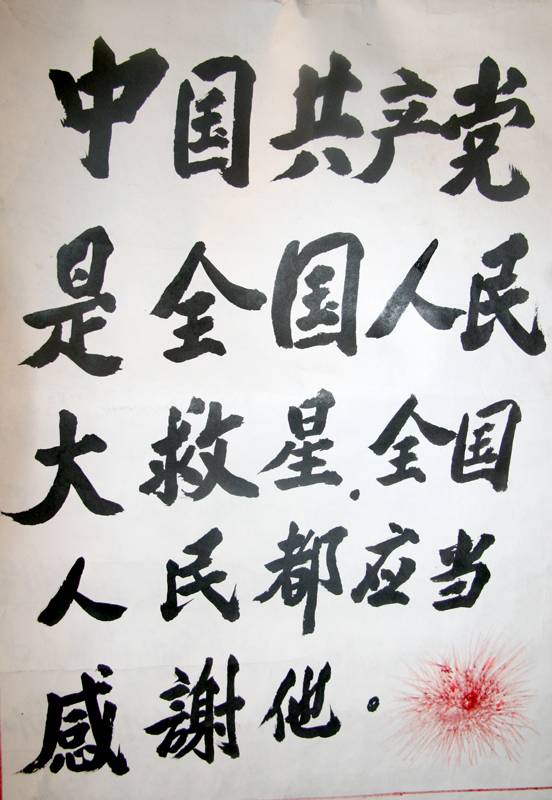 中国共产党
是全国人民
大救星.全国
人民都应当
感謝他.